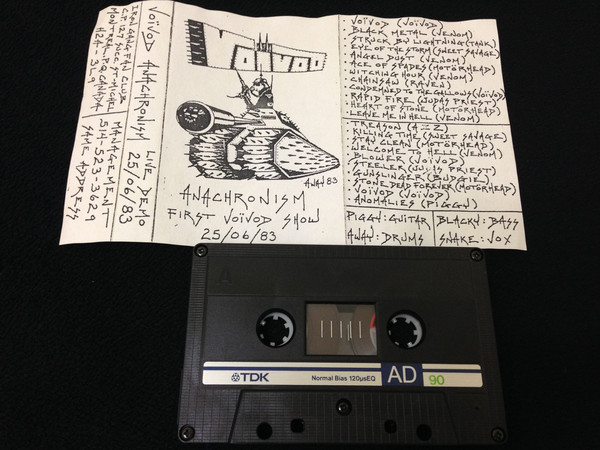 IRON GANG FAN CLUB
C.P. 127 SUCC. ST-MICHEL
MONTREAL P.Q. CANADA
H2A-3L9
VOÏVOD ANACHRONISM
LIVE DEMO
25/06/83
MANAGEMENT
514-523-3629
SAME ADDRESS
VOIVOD
AWAY 83
ANACHRONISM
FIRST VOÏVOD SHOW
25/06/83
• VOÏVOD (VOÏVOD)
• BLACK METAL (VENOM)
• STRUCK BY LIGHTNING (TANK)
• EYE OF THE STORM (SWEET SAVAGE)
• ANGEL DUST (VENOM)
• ACE OF SPADES (MOTÖRHEAD)
• WITCHING HOUR (VENOM)
• CHAINSAW (RAVEN)
• CONDEMNED TO THE GALLOWS (VOÏVOD)
• RAPID FIRE (JUDAS PRIEST)
• HEART OF STONE (MOTÖRHEAD)
• LEAVE ME IN HELL (VENOM)
• TREASON (A II Z)
• KILLING TIME (SWEET SAVAGE)
• STAY CLEAN (MOTÖRHEAD)
• WELCOME TO HELL (VENOM)
• BLOWER (VOÏVOD)
• STEELER (JUDAS PRIEST)
• GUNSLINGER (BUDGIE)
• STONE DEAD FOREVER (MOTÖRHEAD)
• VOÏVOD (VOÏVOD)
• ANOMALIES (PIGGY)
PIGGY: GUITAR
BLACKY: BASS
AWAY: DRUMS
SNAKE: VOX
TDK
Normal Bias 120µsEQ
AD
90